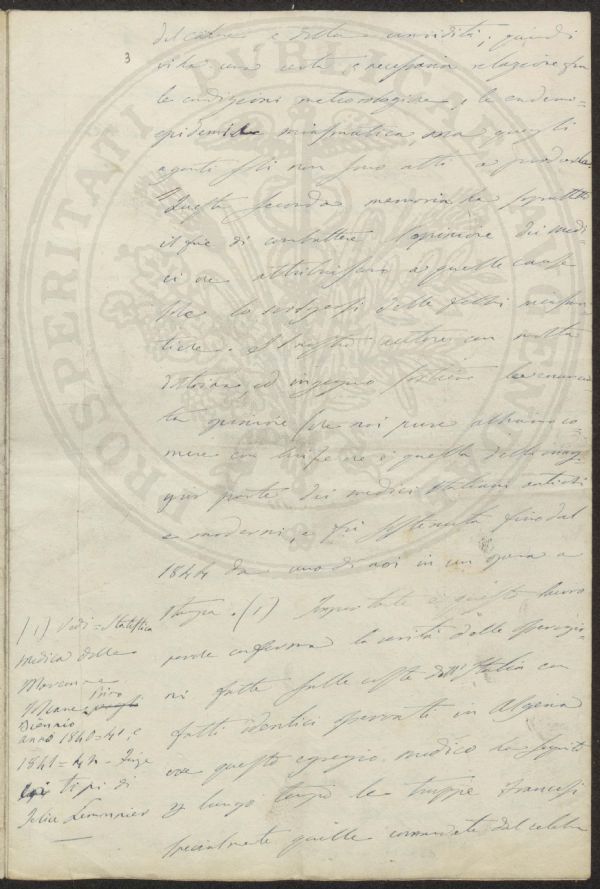 3
del calore e della umidità; quindi
vidi una certa e necessaria relazione fra
le condizioni meteorologiche, e le endemi-
epidemie miasmatica, ma quegli
agenti soli non sono atti a produrla
Questa seconda memoria ha soprattutto
il fine di combattere l'opinione dei medi-
ci che attribuiscono a quelle cause
sole lo svolgersi delle febbri
Il nostro autore con molta
dottrina, ed ingegno sostiene
ta opinione che noi pure abbiamo co-
mune con lui, e che è quella della mag-
gior parte dei medici Italiani antichi
e moderni, e fu sostenuta fino dal
1844 da uno di noi in un opera a
stampa. (1) Importante è questo lavoro
perché conferma la verità delle osservazio-
ni fatte sulle coste dell'Italia con
fatti identici osservati in Algeria
ove questo egregio medico ha seguito
per lungo tempo le truppe francesi
specialmente quelle comandate dal celebre
(1) Vedi = Statistica
medica delle
Maremme
Toscane primo
Biennio
anno 1840=41, e
1841=42 -
tipi di
Felice Lemonnier
PROSPERITATI PUBLICAE